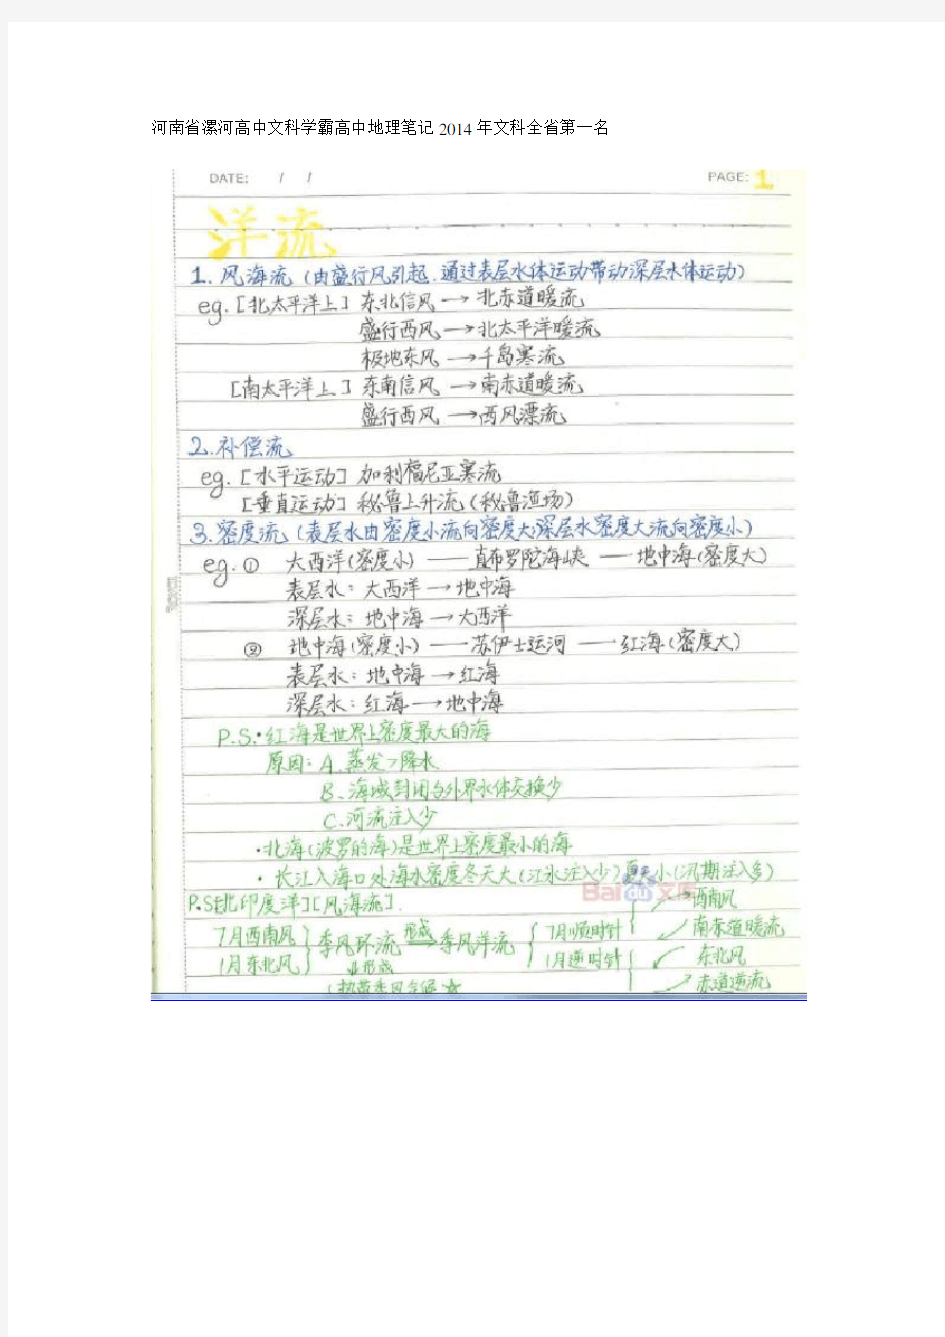 河南省漯河高中文科学霸高中地理笔记 2014 年文科全省第一名
DATE: / /
PAGE: 1
洋流
1. 风海流 (由盛行风引起.通过表层水体运动带动深层水体运动)
eg. [北太平洋上] 东北信风 → 北赤道暖流
盛行西风 → 北太平洋暖流
极地东风 → 千岛寒流
[南太平洋上] 东南信风 → 南赤道暖流
盛行西风 → 西风漂流
2. 补偿流
eg. [水平运动] 加利福尼亚寒流
[垂直运动] 秘鲁上升流 (秘鲁渔场)
3. 密度流 (表层水由密度小流向密度大深层水密度大流向密度小)
eg. ① 大西洋(密度小) —— 直布罗陀海峡 —— 地中海(密度大)
表层水: 大西洋 → 地中海
深层水: 地中海 → 大西洋
② 地中海(密度小) —— 苏伊士运河 —— 红海(密度大)
表层水: 地中海 → 红海
深层水: 红海 → 地中海
P.S.·红海是世界上密度最大的海
原因: A.蒸发>降水
B、海域封闭与外界水体交换少
C.河流注入少
·北海(波罗的海)是世界上密度最小的海
·长江入海口处海水密度冬天大(江水注入少)夏天小(汛期注入多)
Bai du 文库
P.S[北印度洋][风海流]
西南风
7月西南风 季风环流 形成 季风洋流 7月顺时针 南赤道暖流
1月东北风 ⇓形成 1月逆时针 东北风
热带季风气候☆ 赤道逆流